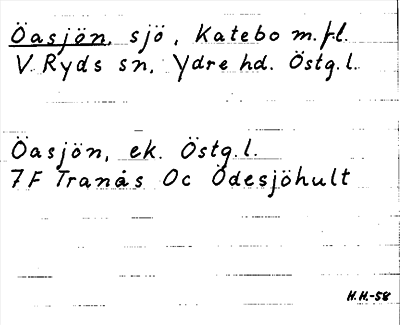 Öasjön, sjö, Katebo m.fl.
V. Ryds sn, Ydre hd. Östg.l.
Öasjön, ek. Östg.l.
7F Tranås Oc Ödesjöhult
H.H.-58